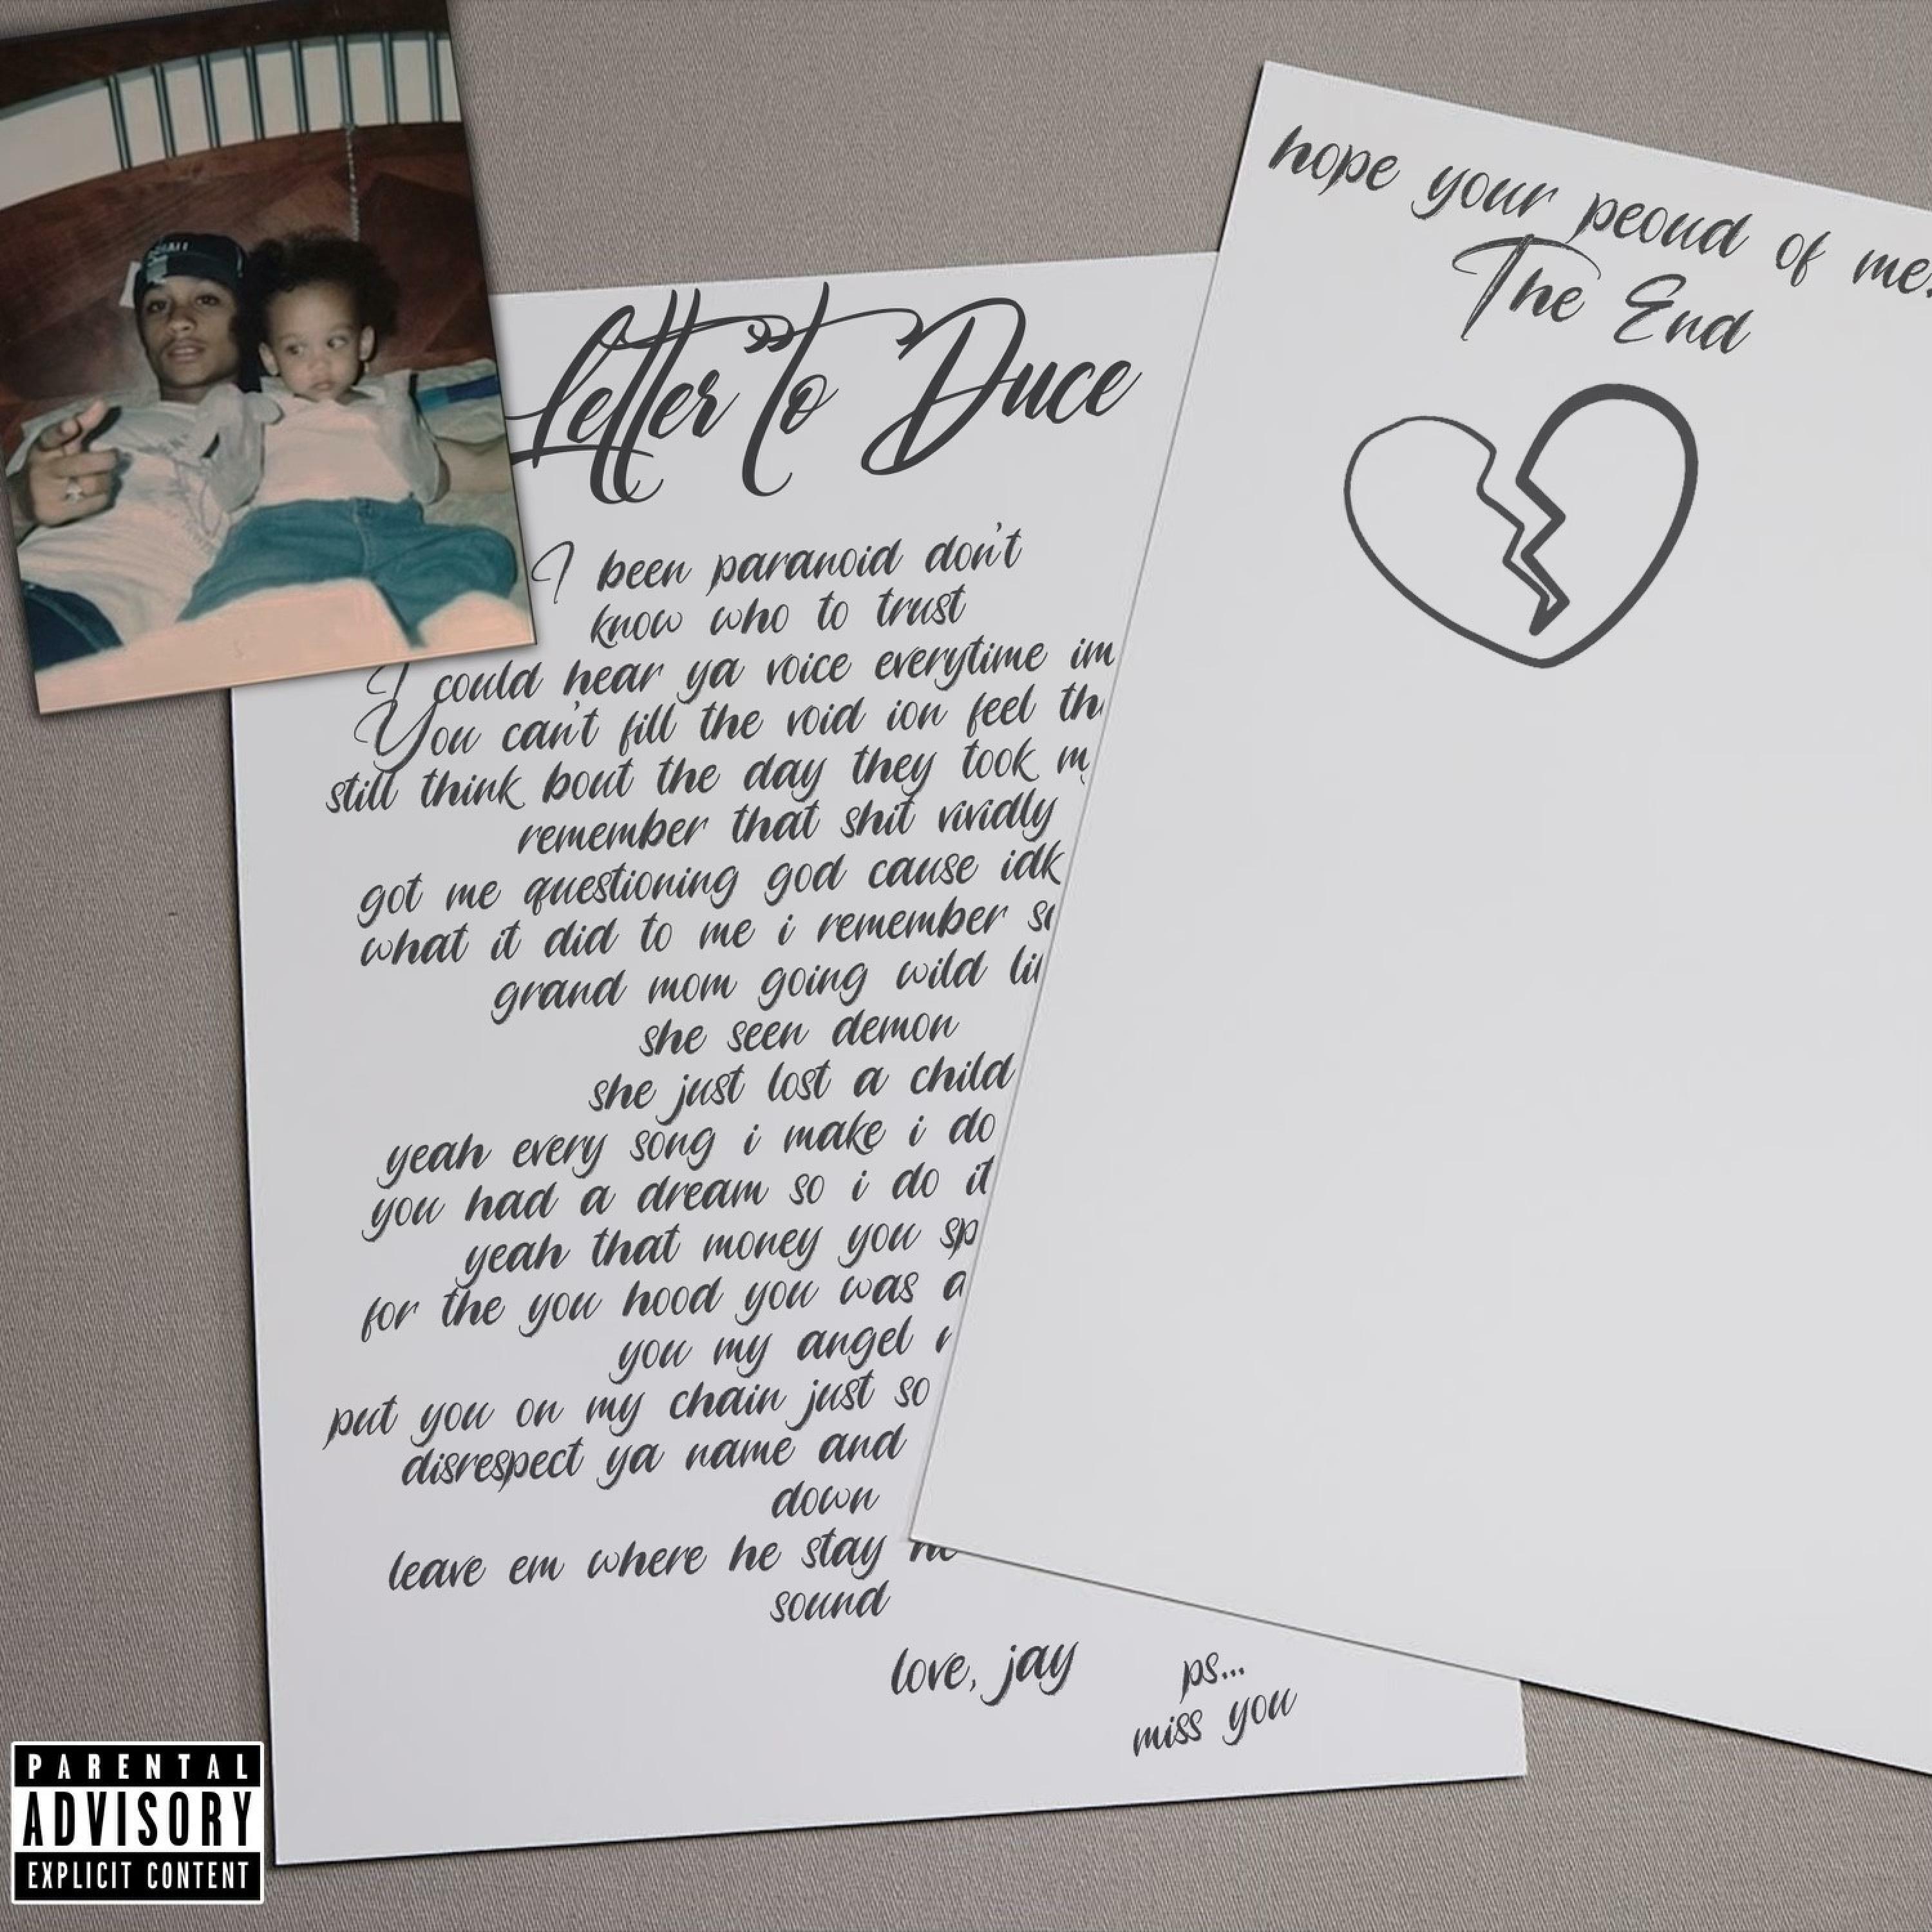 Letter to Duce
I been paranoid don't
know who to trust
I could hear ya voice everytime im
You can't fill the void ion feel
still think bout the day they took
remember that shit vividly
got me questioning god cause idk
what it did to me i remember
grand mom going wild
she seen demon
she just lost a child
yeah every song i make i do
you had a dream so i do it
yeah that money you
for the you hood you was
you my angel
put you on my chain just so
disrespect ya name and
down
leave em where he stay
sound
love, jay
ps...
miss you
hope your peoud of me.
The End
PARENTAL
ADVISORY
EXPLICIT CONTENT